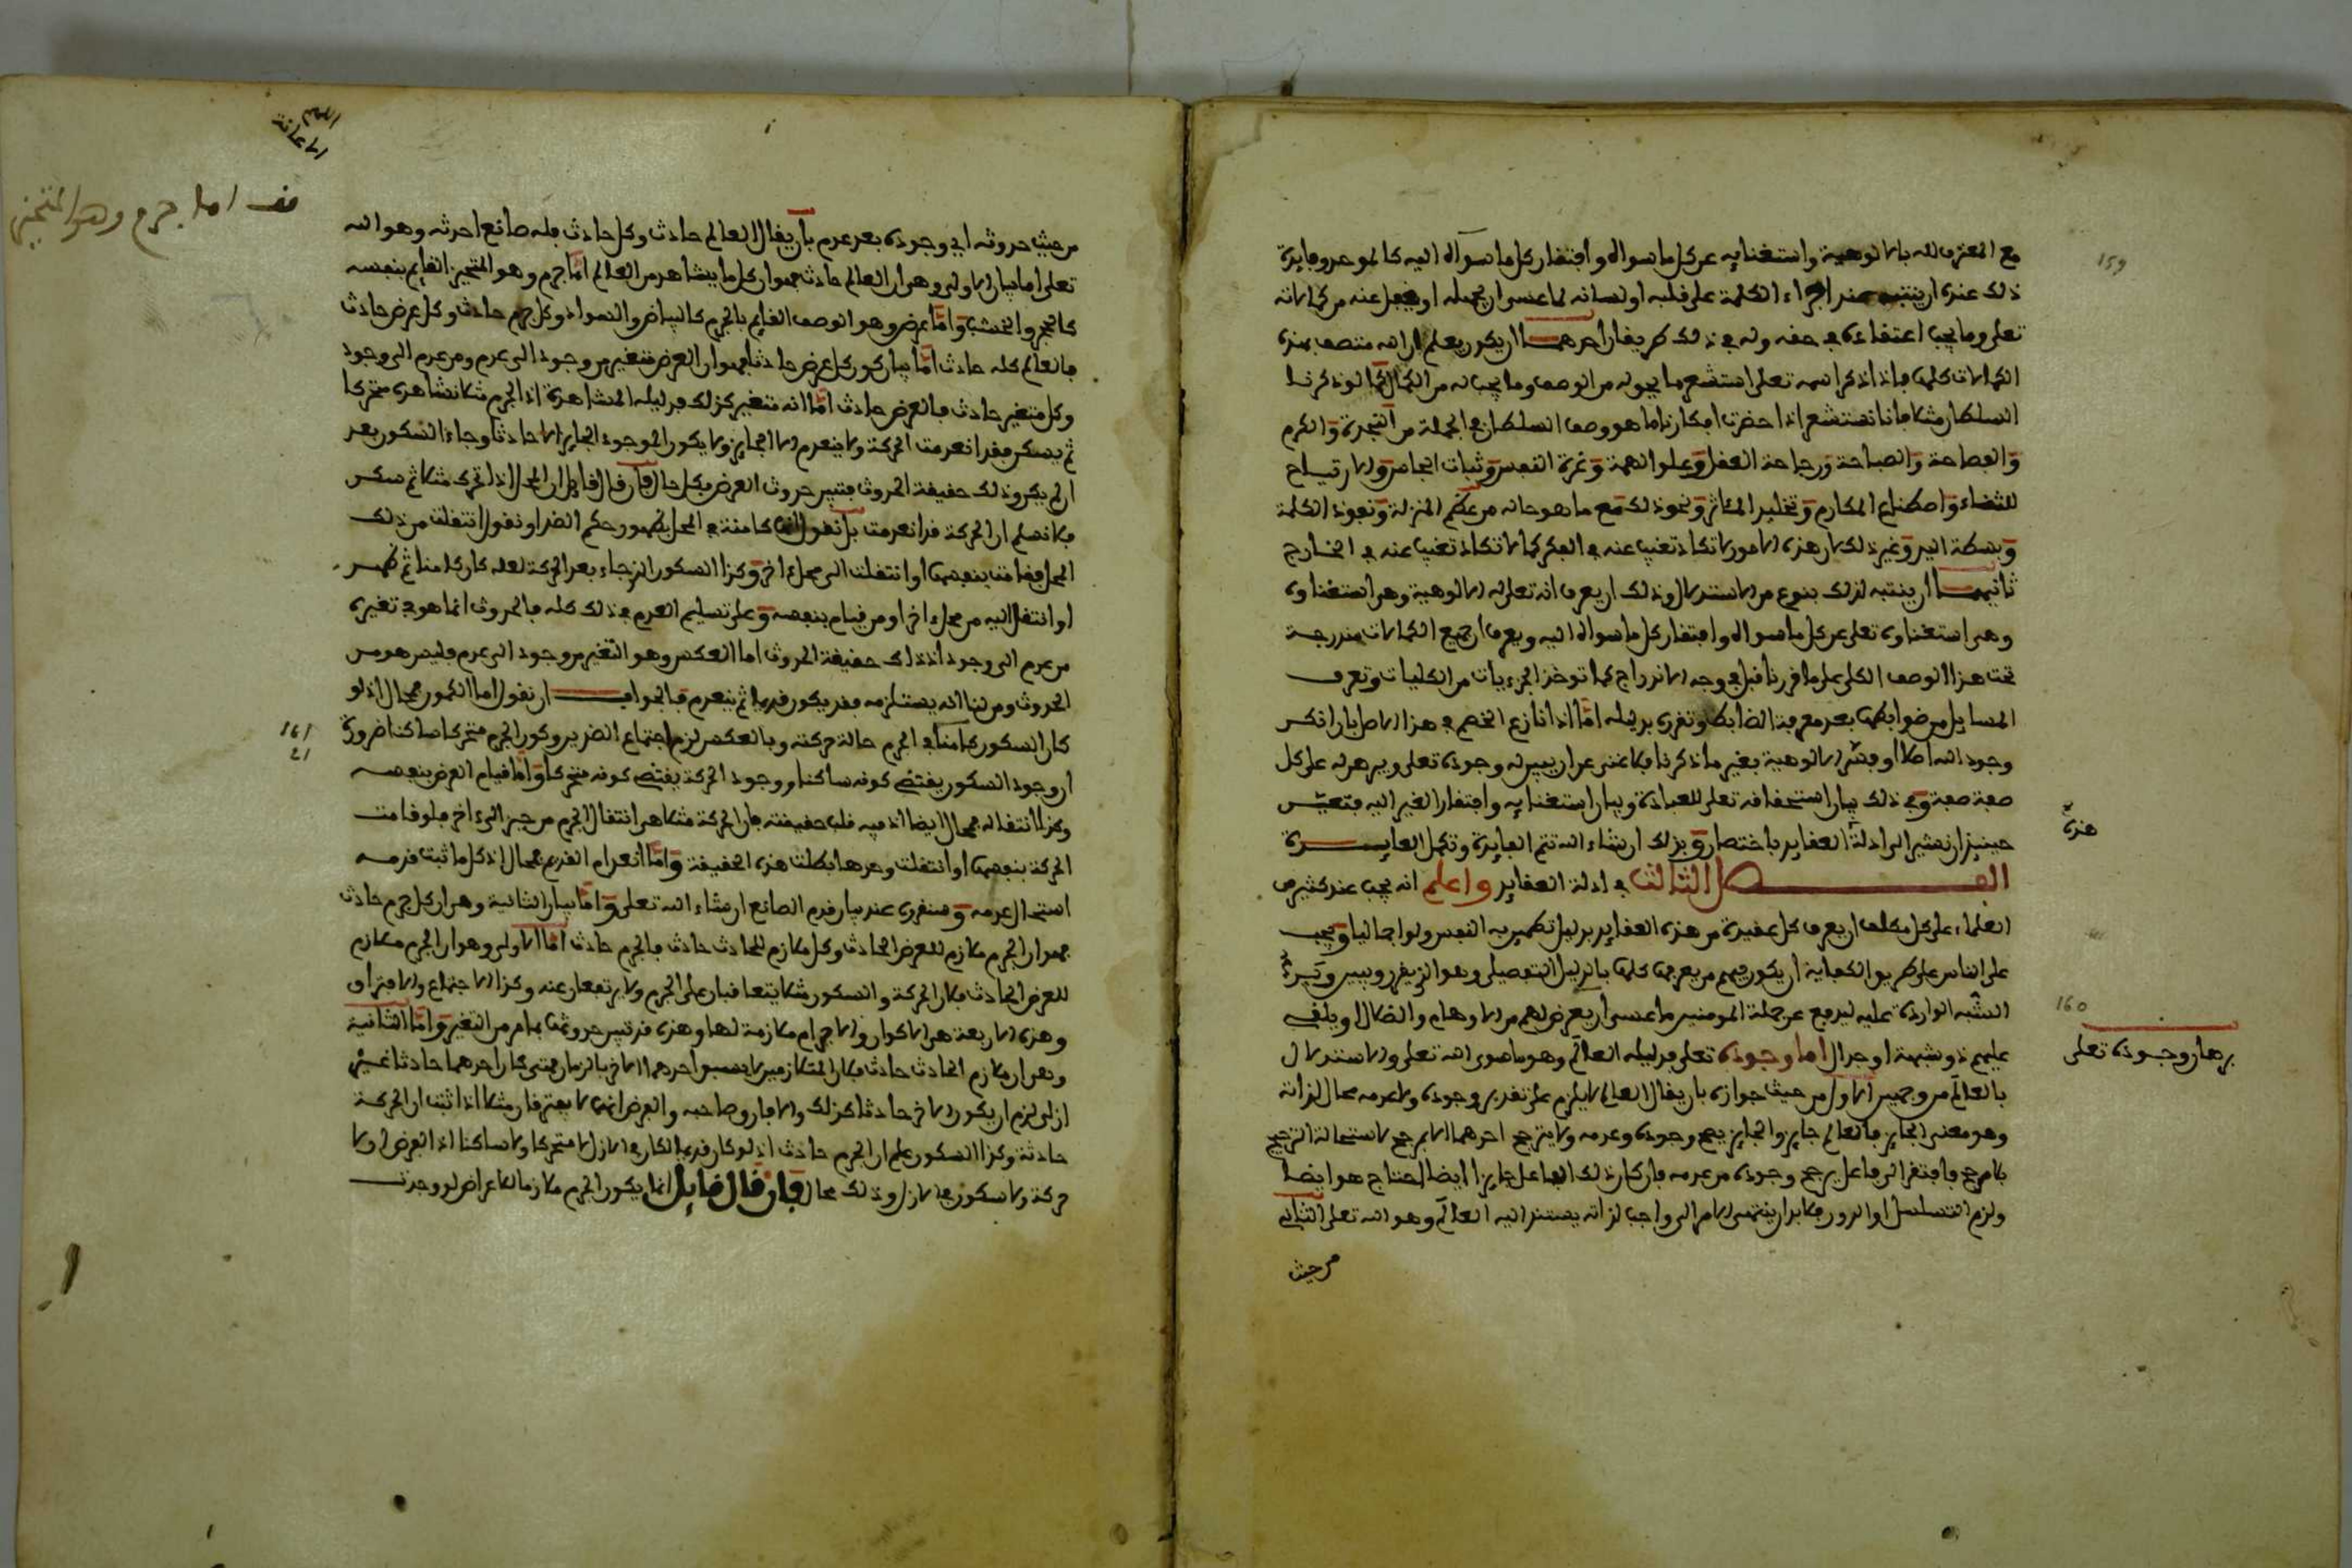 مع المعترف لله بالالوهية واستغنايه عن كل ما سواه وافتقار كل ما سواه اليه كالموحد وفايدة
ذلك عنده ان ينتبه عند اجراء الكلمة على قلبه او لسانه لما عسى ان يجهله او يغفل عنه من كمالاته
تعلى وما يجب اعتقاده في حقه وله في ذلك طريقان احدهما ان يكون يعلم ان الله متصف بهذه
الكمالات كلها فاذا ذكر اسمه تعلى استشعر ما يجب له من الوصف وما يجب له من الكمال كما لو ذكرنا
السلطان مثلا فانا نستشعر اذا حضرت افكارنا ما هو وصف السلطان في الجملة من النجدة والكرم
والفصاحة والصباحة ورجاحة العقل وعلو الهمة وعزة النفس وثبات الجاش والارتياح
للثناء واصطناع المكارم وتخليد المئاثر ونحو ذلك مع ما هو حاله من عظم المنزلة ونفوذ الكلمة
وبسطة اليد وغير ذلك فان هذه الامور لا تكاد تغيب عنه في الفكر كما لا تكاد تغيب عنه في الخارج
ثانيهما ان ينتبه لذلك بنوع من الاستدلال وذلك ان يعرف انه تعلى له الالوهية وهي استغناوه
وهي استغناوه تعلى عن كل ما سواه وافتقار كل ما سواه اليه ويعرف ان جميع الكمالات مندرجة
تحت هذا الوصف الكلي على ما قررنا قبل في وجه الاندراج كما توخذ الجزءيات من الكليات وتعرف
المسايل من ضوابطها بعد معرفة الضابط وتقرره بدليله اما اذا نازع الخصم في هذا الاصل بان انكر
وجود الله اصلا او فسر الالوهية بغير ما ذكرنا فلا غنى عن ان يبين له وجوده تعلى ويبرهن له على كل
صفة صفة وفي ذلك بيان استحقاقه تعلى للعبادة وبيان استغنايه وافتقار الغير اليه فتعين
حينيذ ان نشير الى ادلة العقايد باختصار وبذلك ان شاء الله تتم الفايدة وتكمل العايدة
الفصل الثالث في ادلة العقايد واعلم انه يجب عند كثير من
العلماء على كل مكلف ان يعرف كل عقيدة من هذه العقايد بدليل تطمين به النفس ولو اجماليا ويجب
على الناس على طريق الكفاية ان يكون فيهم من يعرفها كلها بالدليل التفصيلي وهو الذي يقرر ويبين وترد
الشبه الواردة عليه ليدفع عن جملة المومنين ما عسى ان يعرض لهم من الاوهام والضلال او يلقى
عليهم ذو شبهة او جدال اما وجوده تعلى فدليله العالم وهو ما سوى الله تعلى والاستدلال
بالعالم من وجهين الاول من حيث جوازه بان يقال العالم لا يلزم على تقدير وجوده ولا عدمه محال لذاته
وهو معنى الجايز فالعالم جايز والجايز يصح وجوده وعدمه ولا يترجح احدهما الا بمرجح لاستحالة الترجيح
بلا مرجح فافتقر الى فاعل يرجح وجوده من عدمه فان كان ذلك الفاعل جايزا ايضا احتاج هو ايضا
ولزم التسلسل او الدور فلا بد ان ينتهي الامر الى واجب لذاته يستند اليه العالم وهو الله تعلى الثاني
من حيث
159
هذه
160
برهان وجوده تعلى
اللهم
الاعانة
قف اما جرم وهو المتحيز
من حيث حدوثه اي وجوده بعد عدم بان يقال العالم حادث وكل حادث فله صانع احدثه وهو الله
تعلى اما بيان الاولى وهي ان العالم حادث فهو ان كل ما يشاهد من العالم اما جرم وهو المتحيز القايم بنفسه
كالحجر والخشب واما عرض وهو الوصف القايم بالجرم كالبياض والسواد وكل جرم حادث وكل عرض حادث
فالعالم كله حادث اما بيان كون كل عرض حادثا فهو ان العرض متغير من وجود الى عدم ومن عدم الى وجود
وكل متغير حادث فالعرض حادث اما انه متغير كذلك فدليله المشاهدة اذ الجرم مثلا نشاهده متحركا
ثم يسكن فقد انعدمت الحركة ولا ينعدم الا الجايز ولا يكون الموجود الجايز الا حادثا وجاء السكون بعد
ان لم يكن وذلك حقيقة الحدوث فتبين حدوث العرض بكل حال فان قال قايل ان المحل اذا تحرك مثلا ثم سكن
فلا نسلم ان الحركة قد انعدمت بل نقول انها كامنة في المحل لظهور حكم الضد او نقول انتقلت من ذلك
المحل فقامت بنفسها او انتقلت الى محل اخر وكذا السكون الذي جاء بعد الحركة لعله كان كامنا ثم ظهر
او انتقل اليه من محل اخر او من قيام بنفسه وعلى تسليم العدم في ذلك كله فالحدوث انما هو في تغيره
من عدم الى وجود اذ ذلك حقيقة الحدوث اما العكس وهو التغير من وجود الى عدم فليس هو من
الحدوث ومن لنا انه يستلزمه فقد يكون قديما ثم ينعدم فالجواب ان نقول اما الكمون فمحال اذ لو
كان السكون كامنا في الجرم حالة حركته وبالعكس لزم اجتماع الضدين وكون الجرم متحركا ساكنا ضرورة
ان وجود السكون يقتضي كونه ساكنا ووجود الحركة يقتضي كونه متحركا واما قيام العرض بنفسه
وكذا انتقاله فمحال ايضا اذ فيه قلب حقيقته فان الحركة مثلا هي انتقال الجرم من حيز الى اخر فلو قامت
الحركة بنفسها او انتقلت وحدها بطلت هذه الحقيقة واما انعدام القديم فمحال اذ كل ما ثبت قدمه
استحال عدمه وسنقرره عند بيان قدم الصانع ان شاء الله تعلى واما بيان الثانية وهي ان كل جرم حادث
فهو ان الجرم ملازم للعرض الحادث وكل ملازم للحادث حادث فالجرم حادث اما الاولى وهو ان الجرم ملازم
للعرض الحادث فلان الحركة والسكون مثلا يتعاقبان على الجرم ولا يرتفعان عنه وكذا الاجتماع والافتراق
وهذه الاربعة هي الاكوان والاجرام ملازمة لها وهذه قد تبين حدوثها بما مر من التغير واما الثانية
وهي ان ملازم الحادث حادث فلان المتلازمين لا يسبق احدهما الاخر بالزمان فمتى كان احدهما حادثا غير
ازلي لزم ان يكون الاخر حادثا كذلك والا فارق صاحبه والفرض انهما لا يفترقان مثلا اذا ثبت ان الحركة
حادثة وكذا السكون علم ان الجرم حادث اذ لو كان قديما لكان في الازل لا متحركا ولا ساكنا اذ الفرض ان لا
حركة ولا سكون في الازل وذلك محال فان قال قايل انما يكون الجرم ملازما للاعراض لو وجدت
161